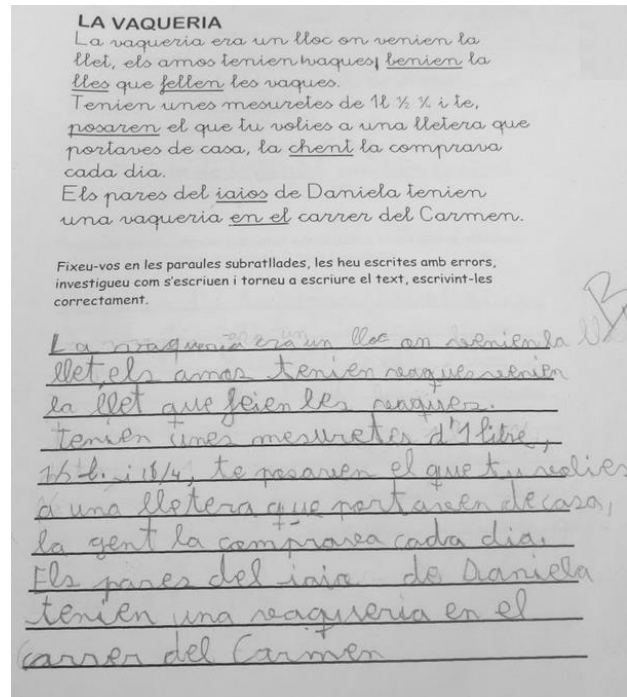 LA VAQUERIA
La vaqueria era un lloc on venien la
llet, els amos tenien vaques, benien la
lles que fellen les vaques.
Tenien unes mesuretes de 1l ½ ¼ i te,
posaren el que tu volies a una lletera que
portaves de casa, la chent la comprava
cada dia.
Els pares del iaios de Daniela tenien
una vaqueria en el carrer del Carmen.
Fixeu-vos en les paraules subratllades, les heu escrites amb errors,
investigueu com s'escriuen i torneu a escriure el text, escrivint-les
correctament.
La vaqueria era un lloc on venien la
llet, els amos tenien vaques venien
la llet que feien les vaques.
tenien unes mesuretes d'1 litre,
i te posaven el que tu volies
a una lletera que portaven de casa,
la gent la comprava cada dia.
Els pares del iaio de Daniela
tenien una vaqueria en el
carrer del Carmen